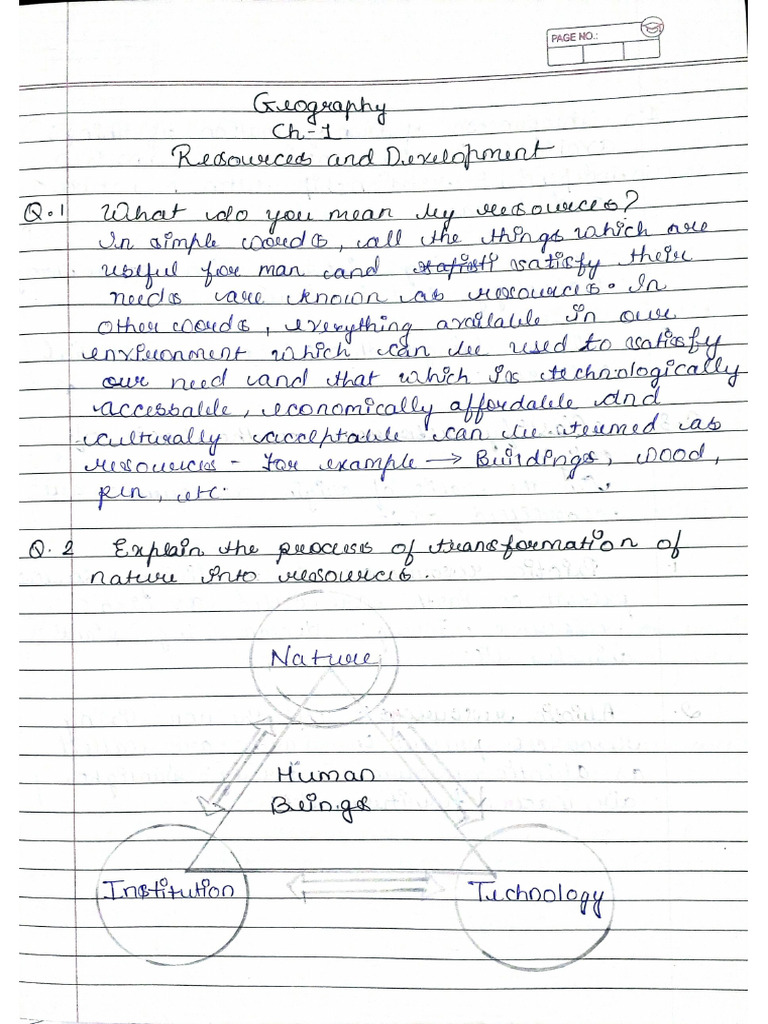 PAGE NO.:
Geography
Ch-1
Resources and Development
Q.1 What do you mean by resources?
In simple words, all the things which are
useful for man and satisfy their
needs are known as resources. In
other words, everything available in our
environment which can be used to satisfy
our need and that which is technologically
accessable, economically affordable and
culturally acceptable can be termed as
resources - For example → Buildings, wood,
pen, etc.
Q.2 Explain the process of transformation of
nature into resources.
Nature
Human
Beings
Institution
Technology